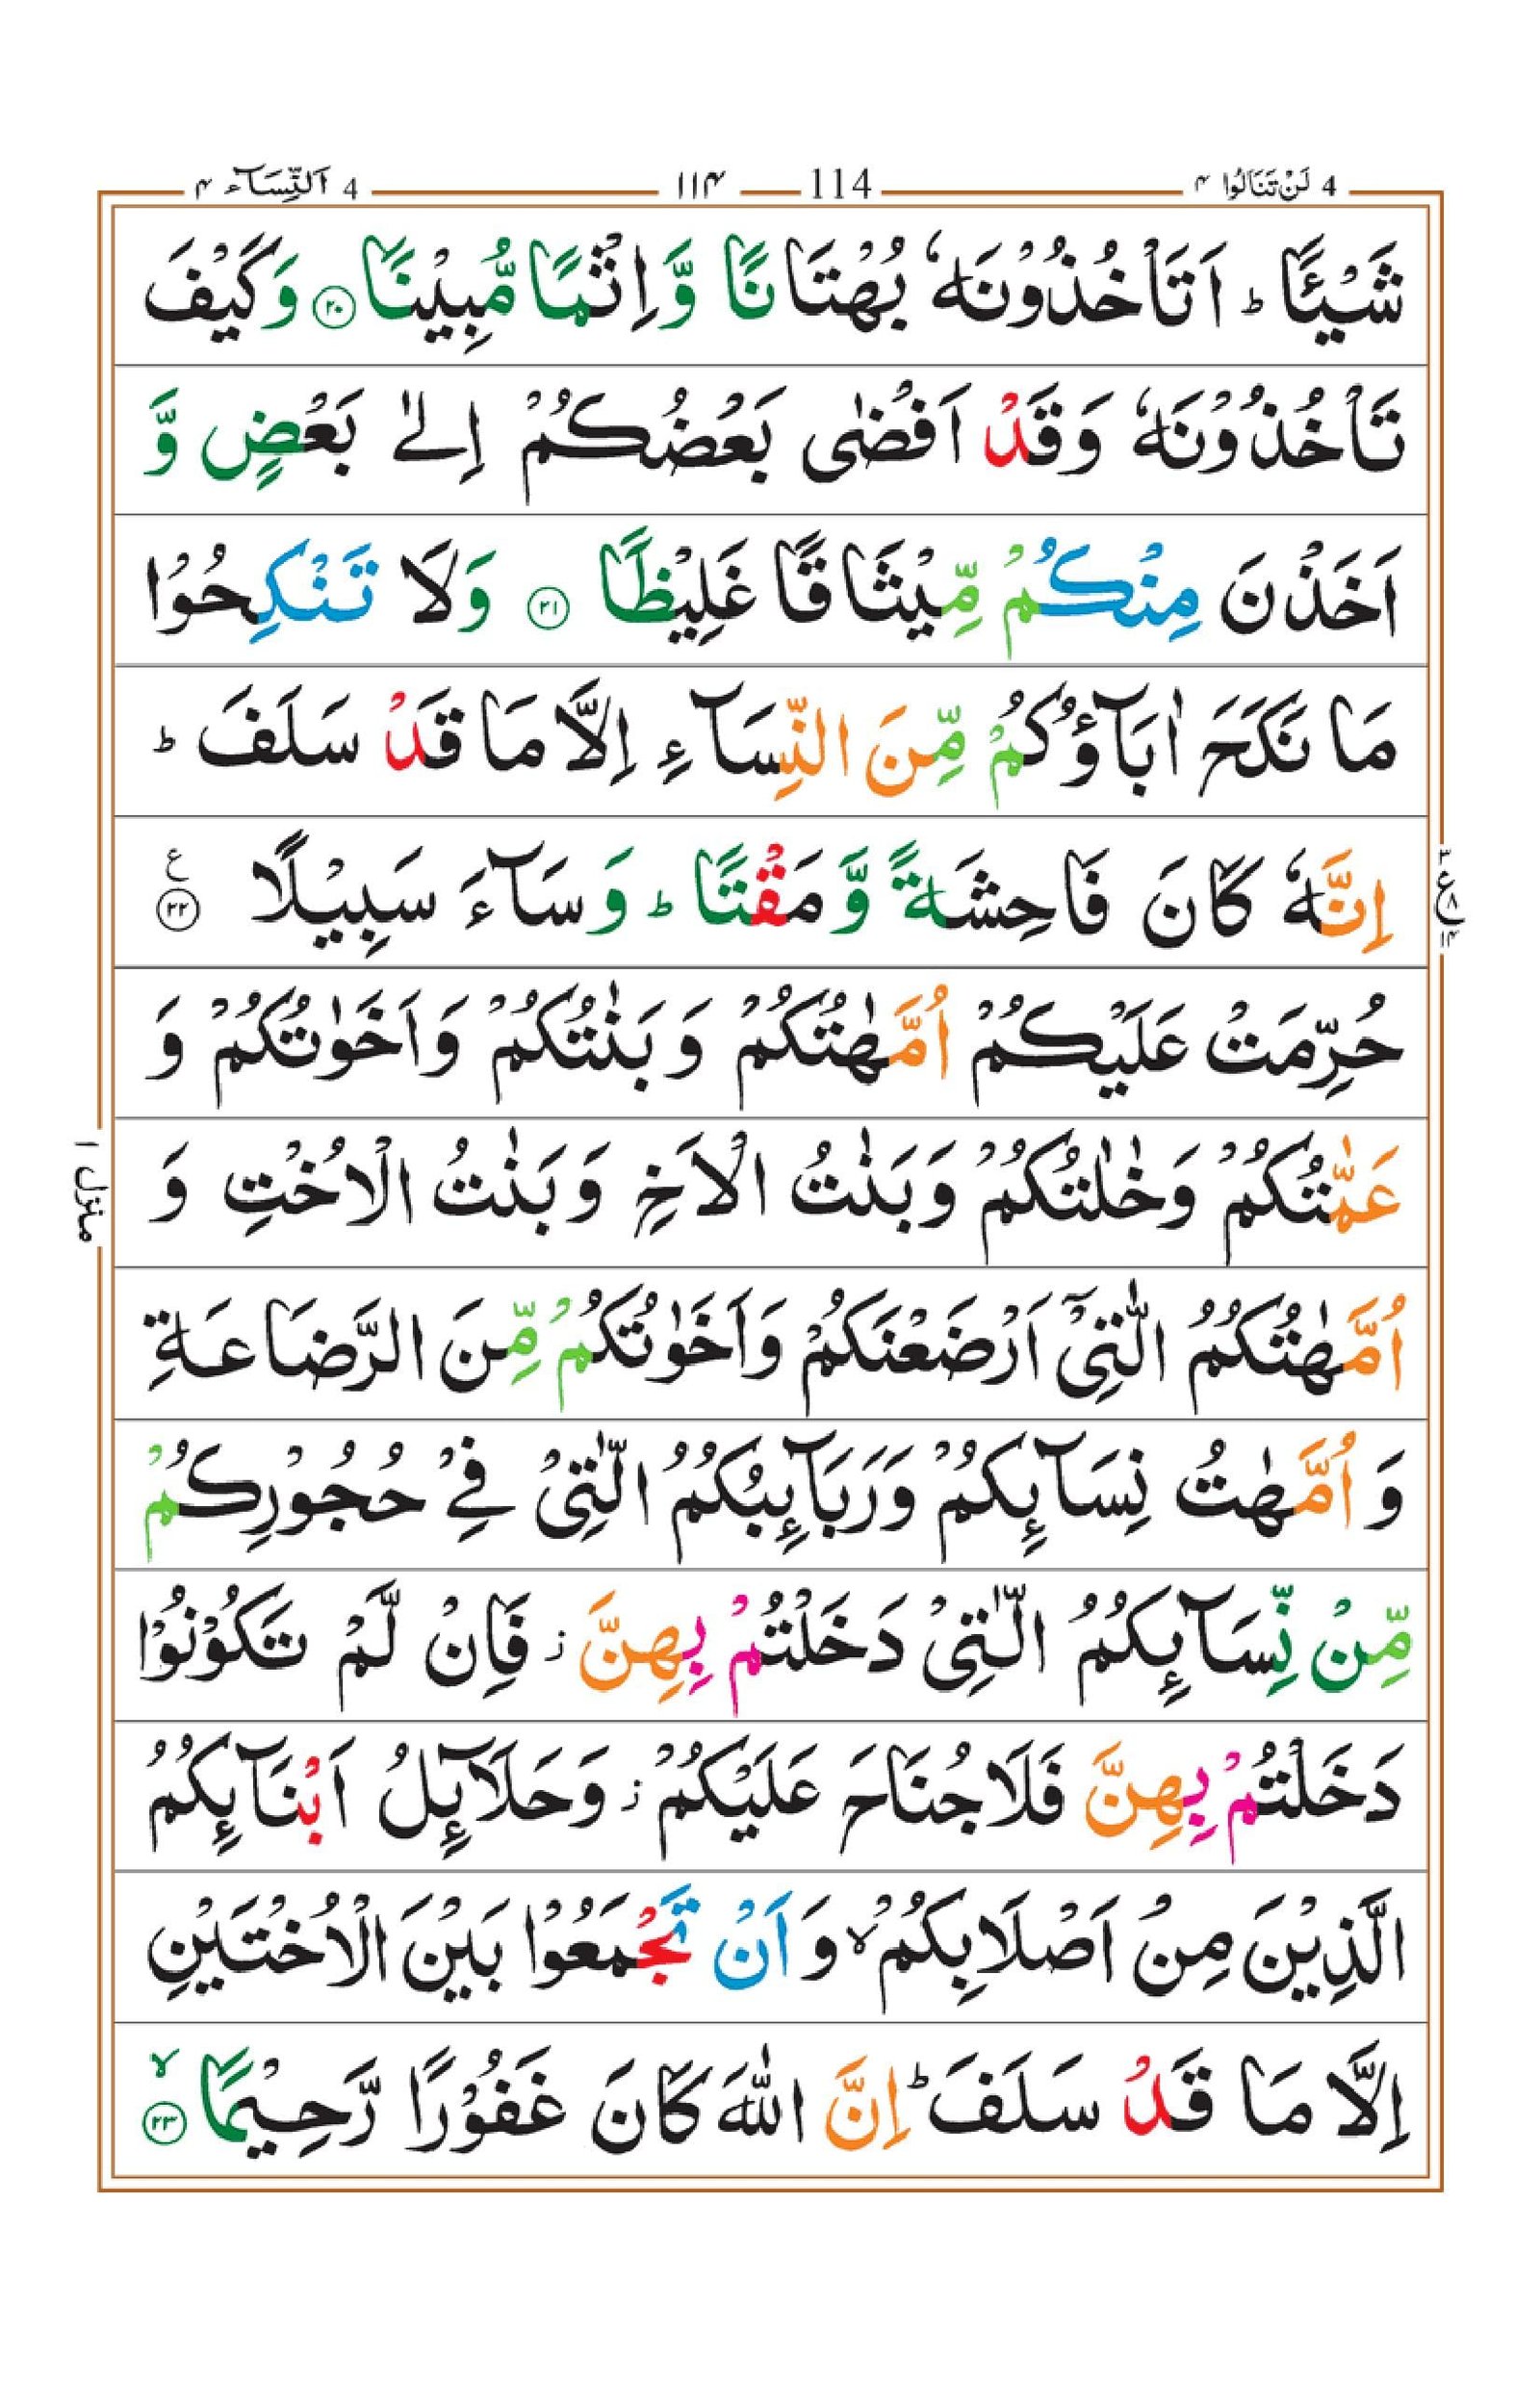 4 لَنْ تَنَالُوا ۴
114 ۱۱۴
4 اَلنِّسَآء ۴
شَيْـًٔا ؕ اَتَاْخُذُوْنَهٗ بُهْتَانًا وَّاِثْمًا مُّبِيْنًا ۲۰ وَكَيْفَ
تَاْخُذُوْنَهٗ وَقَدْ اَفْضٰى بَعْضُكُمْ اِلٰى بَعْضٍ وَّ
اَخَذْنَ مِنْكُمْ مِّيْثَاقًا غَلِيْظًا ۲۱ وَلَا تَنْكِحُوْا
مَا نَكَحَ اٰبَآؤُكُمْ مِّنَ النِّسَآءِ اِلَّا مَا قَدْ سَلَفَ ؕ
اِنَّهٗ كَانَ فَاحِشَةً وَّمَقْتًا ؕ وَسَآءَ سَبِيْلًا ۲۲ ع
ع ۳ ۸ ۱۴
حُرِّمَتْ عَلَيْكُمْ اُمَّهٰتُكُمْ وَبَنٰتُكُمْ وَاَخَوٰتُكُمْ وَ
عَمّٰتُكُمْ وَخٰلٰتُكُمْ وَبَنٰتُ الْاَخِ وَبَنٰتُ الْاُخْتِ وَ
منزل ۱
اُمَّهٰتُكُمُ الّٰتِيْٓ اَرْضَعْنَكُمْ وَاَخَوٰتُكُمْ مِّنَ الرَّضَاعَةِ
وَاُمَّهٰتُ نِسَآئِكُمْ وَرَبَآئِبُكُمُ الّٰتِيْ فِيْ حُجُوْرِكُمْ
مِّنْ نِّسَآئِكُمُ الّٰتِيْ دَخَلْتُمْ بِهِنَّ ز فَاِنْ لَّمْ تَكُوْنُوْا
دَخَلْتُمْ بِهِنَّ فَلَا جُنَاحَ عَلَيْكُمْ ز وَحَلَآئِلُ اَبْنَآئِكُمُ
الَّذِيْنَ مِنْ اَصْلَابِكُمْ ۙ وَاَنْ تَجْمَعُوْا بَيْنَ الْاُخْتَيْنِ
اِلَّا مَا قَدْ سَلَفَ ؕ اِنَّ اللّٰهَ كَانَ غَفُوْرًا رَّحِيْمًا ۙ ۲۳